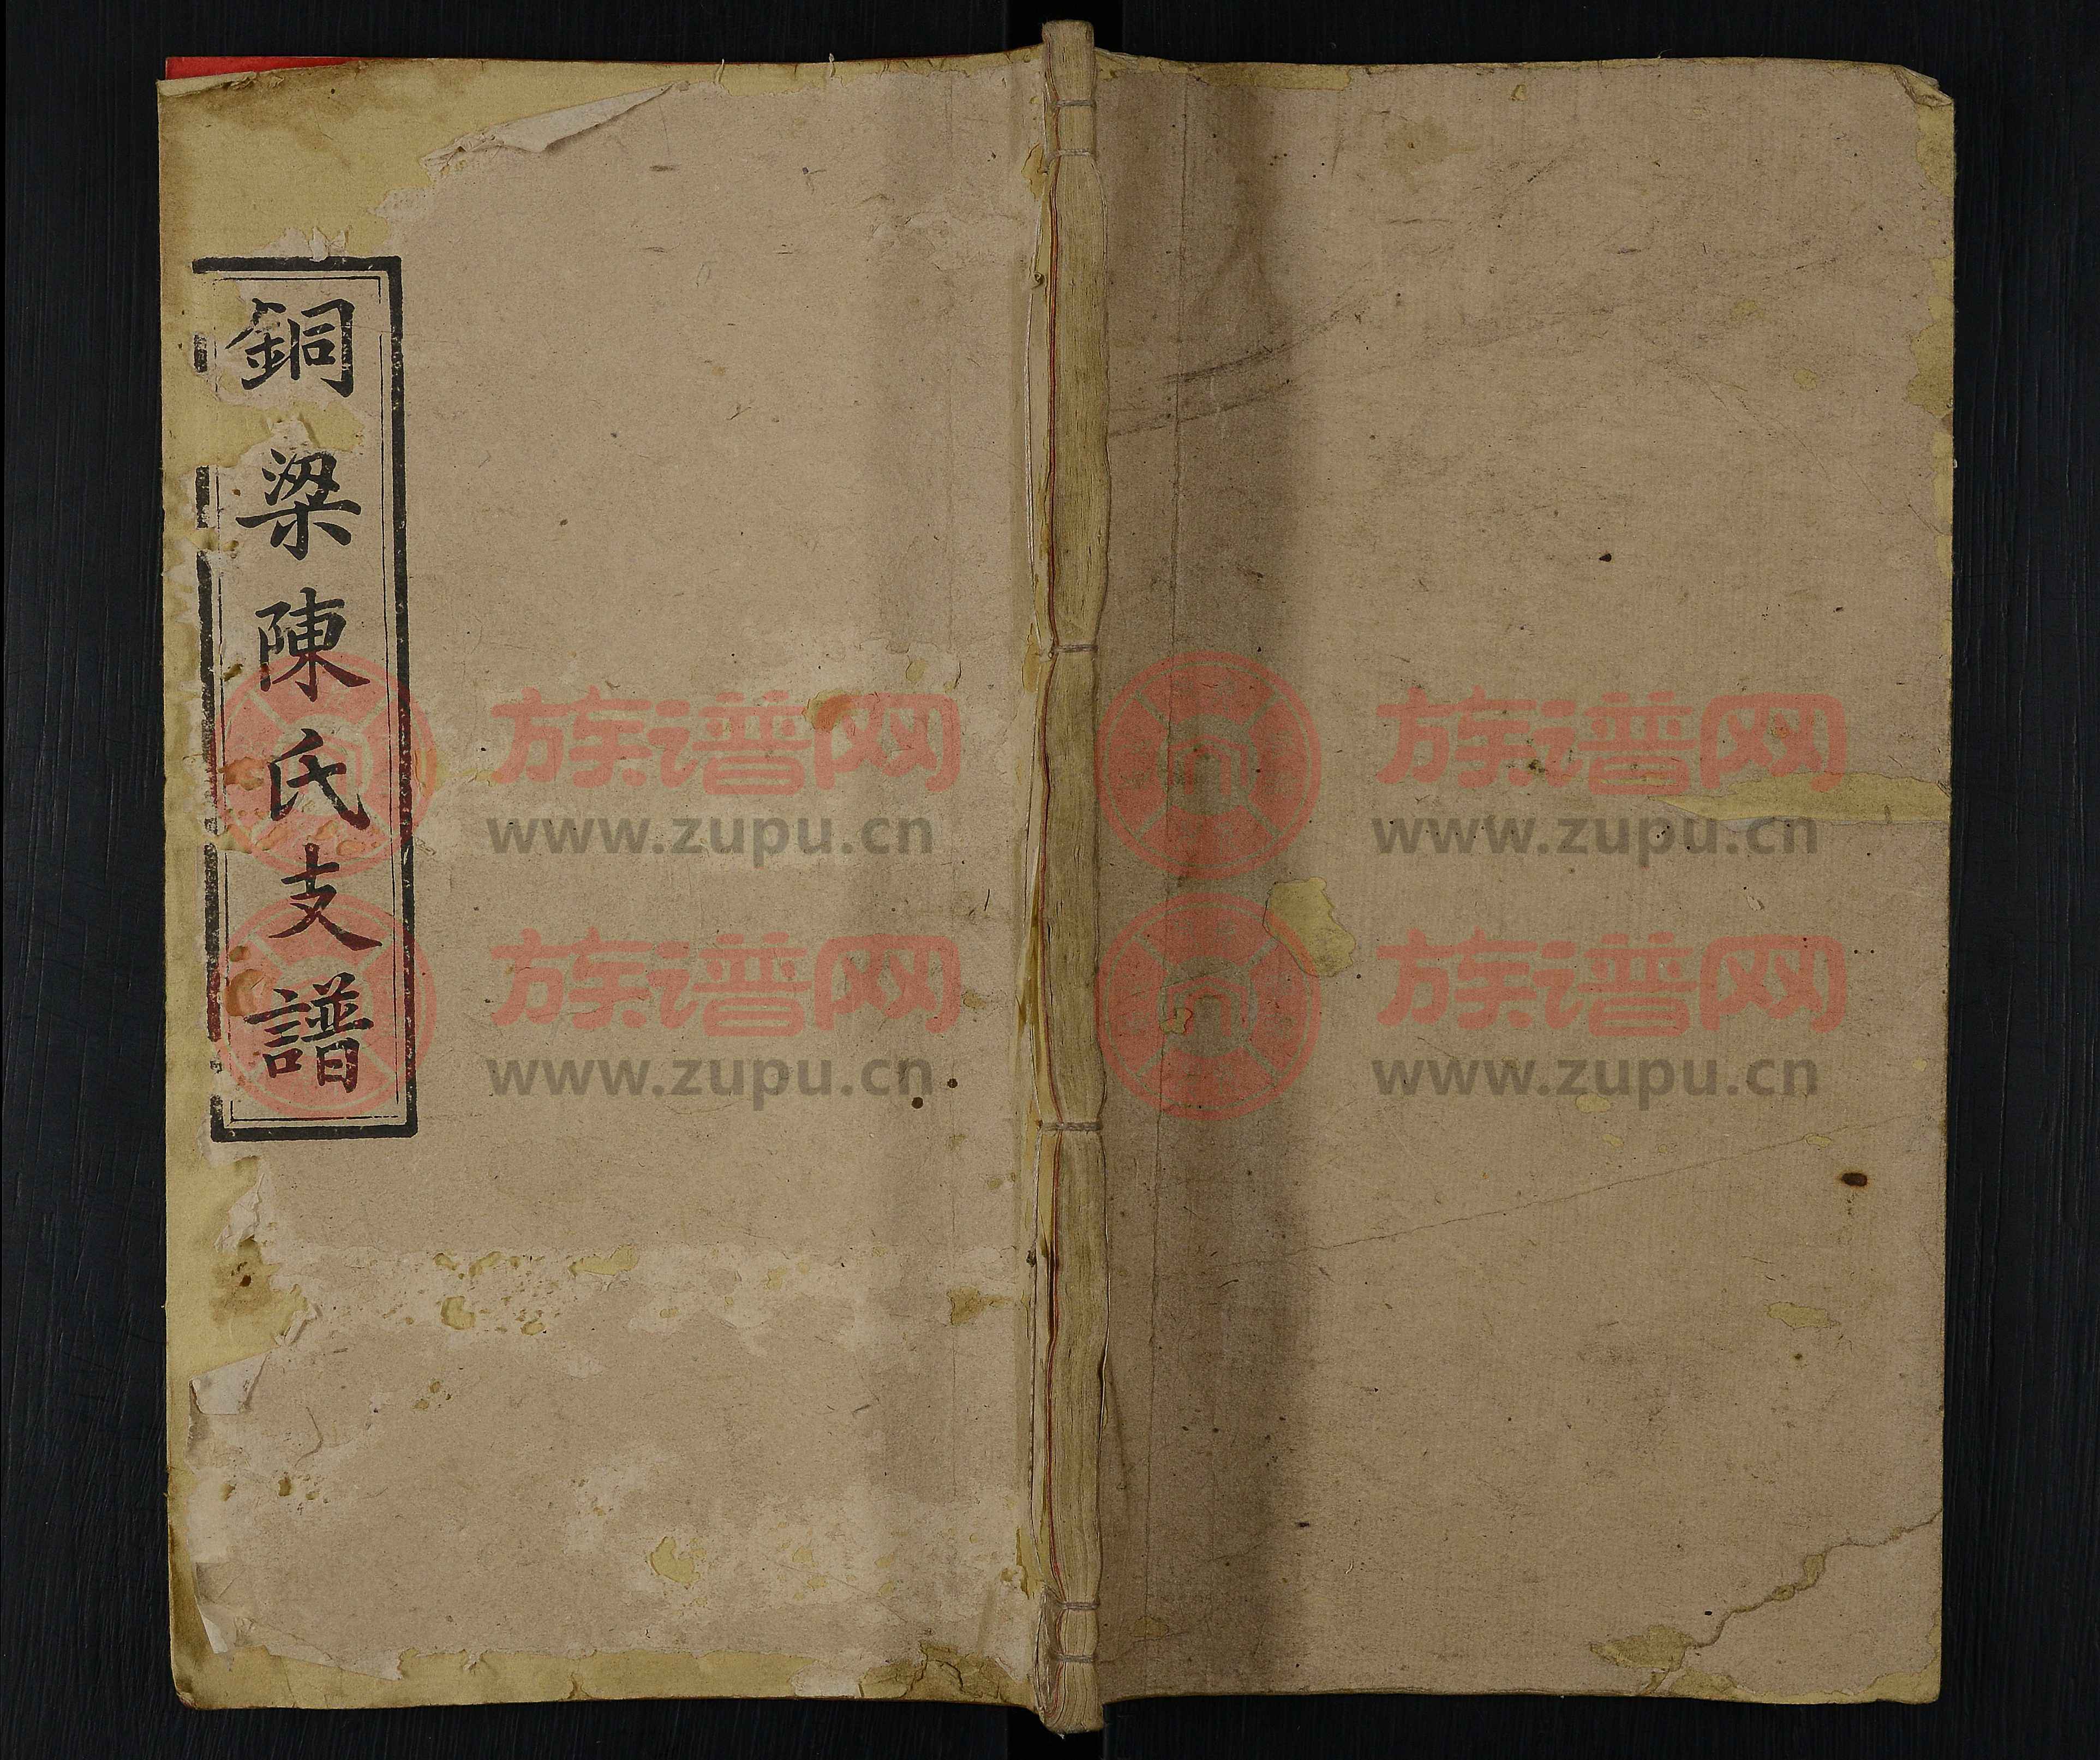 銅梁陳氏支譜
族谱网
www.zupu.cn
族谱网
www.zupu.cn
族谱网
www.zupu.cn
族谱网
www.zupu.cn